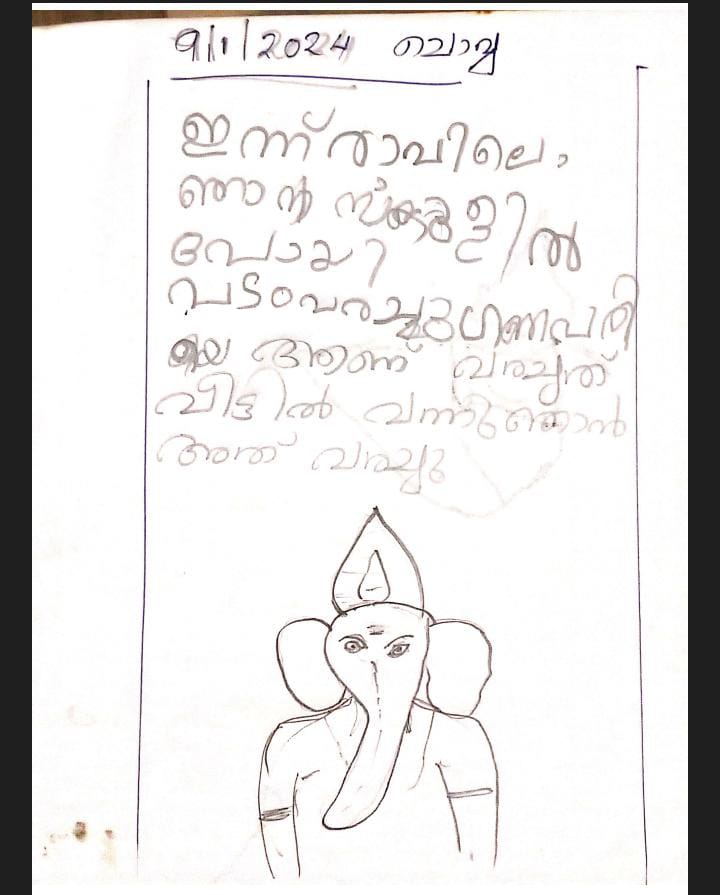 9/1/2024 ചൊവ്വ
ഇന്ന് രാവിലെ,
ഞാൻ സ്കൂളിൽ
പോയി
പടംവരച്ചു ഗണപതി
യെ ആണ് വരച്ചത്
വീട്ടിൽ വന്നു ഞാൻ
അത് വരച്ചു